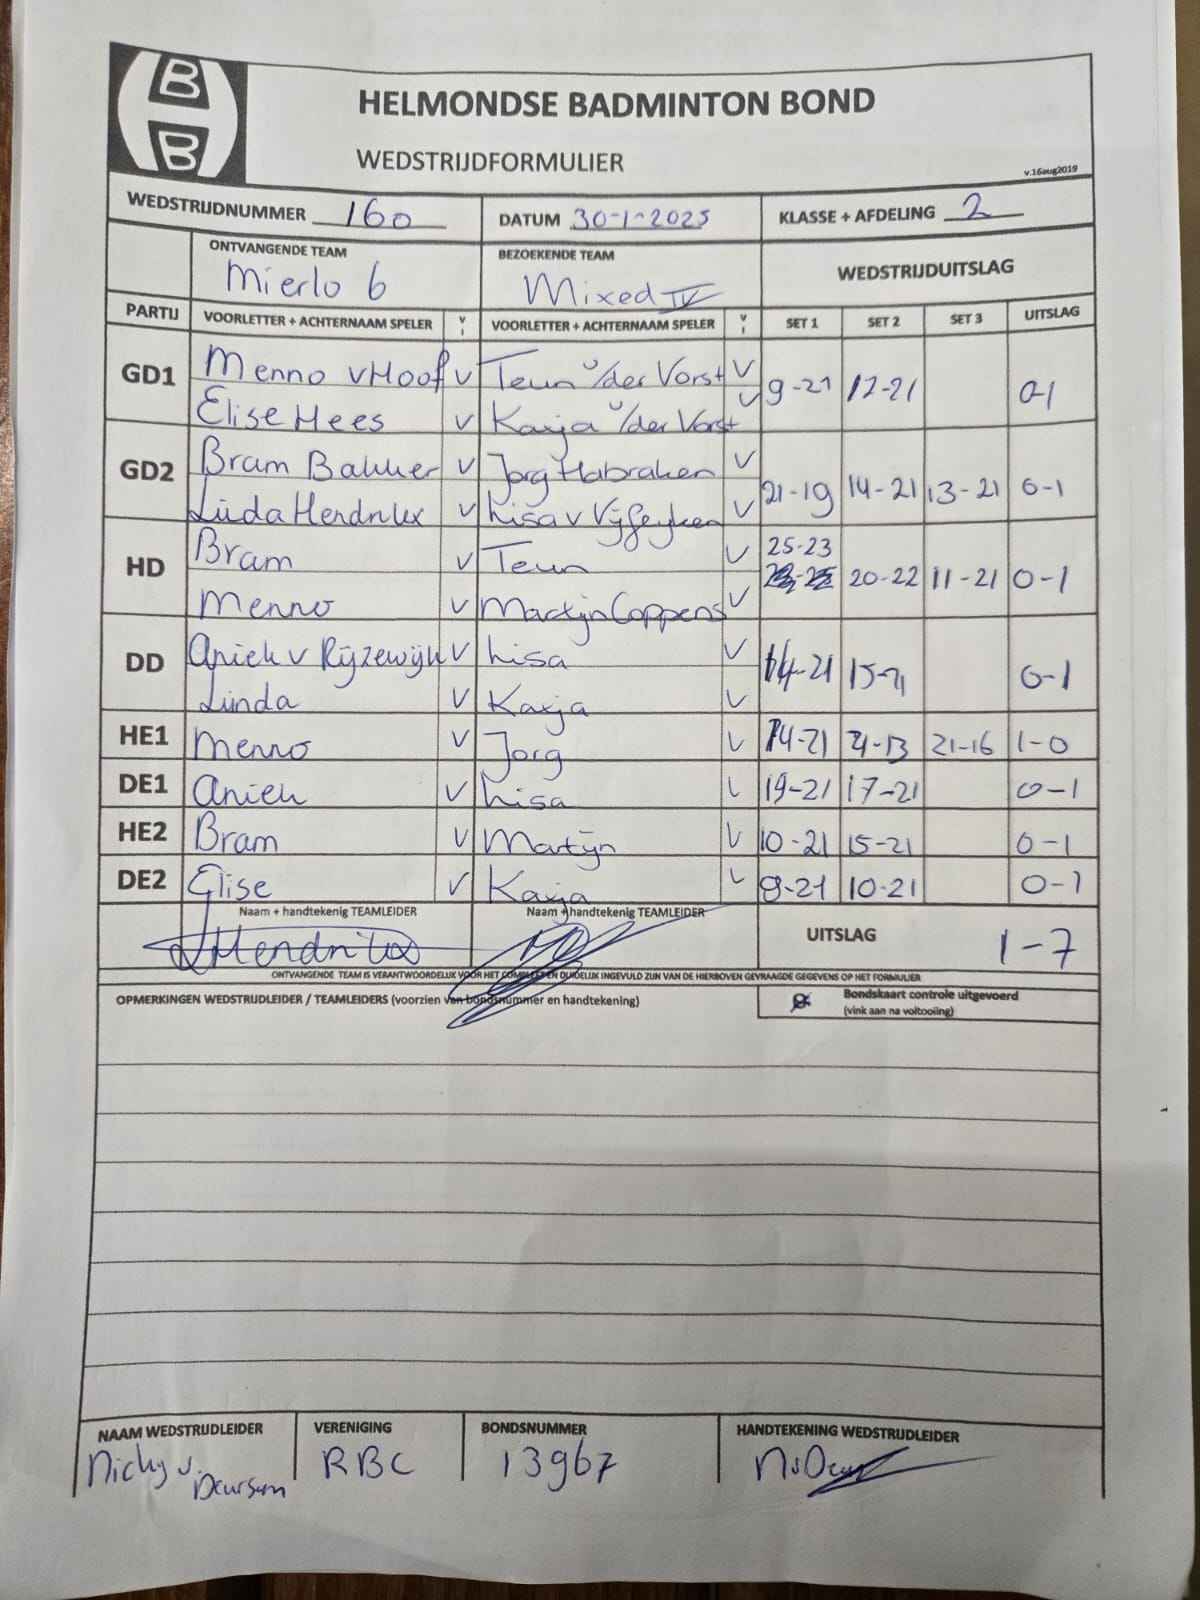 B
B
HELMONDSE BADMINTON BOND
WEDSTRIJDFORMULIER
v.16aug2019
WEDSTRIJDNUMMER 160 DATUM 30-1-2025 KLASSE + AFDELING 2
ONTVANGENDE TEAM BEZOEKENDE TEAM WEDSTRIJDUITSLAG
Mierlo 6 Mixed IV
PARTIJ VOORLETTER + ACHTERNAAM SPELER V I VOORLETTER + ACHTERNAAM SPELER V I SET 1 SET 2 SET 3 UITSLAG
GD1 Menno vHoof V Teun v/der Vorst V 9-21 12-21 0-1
Elise Hees V Kaxja v/der Vorst V
GD2 Bram Bakker V Jorg Habraken V 21-19 14-21 13-21 0-1
Linda Hendrikx V Lisa v Vijfeyken V
HD Bram V Teun V 25-23 20-22 11-21 0-1
Menno V Martijn Coppens V
DD Aniek v Rijzewijk V Lisa V 14-21 15-21 0-1
Linda V Kaxja V
HE1 Menno V Jorg V 14-21 21-13 21-16 1-0
DE1 Aniek V Lisa V 19-21 17-21 0-1
HE2 Bram V Martijn V 10-21 15-21 0-1
DE2 Elise V Kaxja V 9-21 10-21 0-1
Naam + handtekenig TEAMLEIDER Naam + handtekenig TEAMLEIDER UITSLAG 1-7
LHendrikx
ONTVANGENDE TEAM IS VERANTWOORDELIJK VOOR HET COMPLEET EN DUIDELIJK INGEVULD ZIJN VAN DE HIERBOVEN GEVRAAGDE GEGEVENS OP HET FORMULIER
OPMERKINGEN WEDSTRIJDLEIDER / TEAMLEIDERS (voorzien van bondsnummer en handtekening) Bondskaart controle uitgevoerd
(vink aan na voltooiing)
NAAM WEDSTRIJDLEIDER VERENIGING BONDSNUMMER HANDTEKENING WEDSTRIJDLEIDER
Nicky v. Deursen RBC 13967